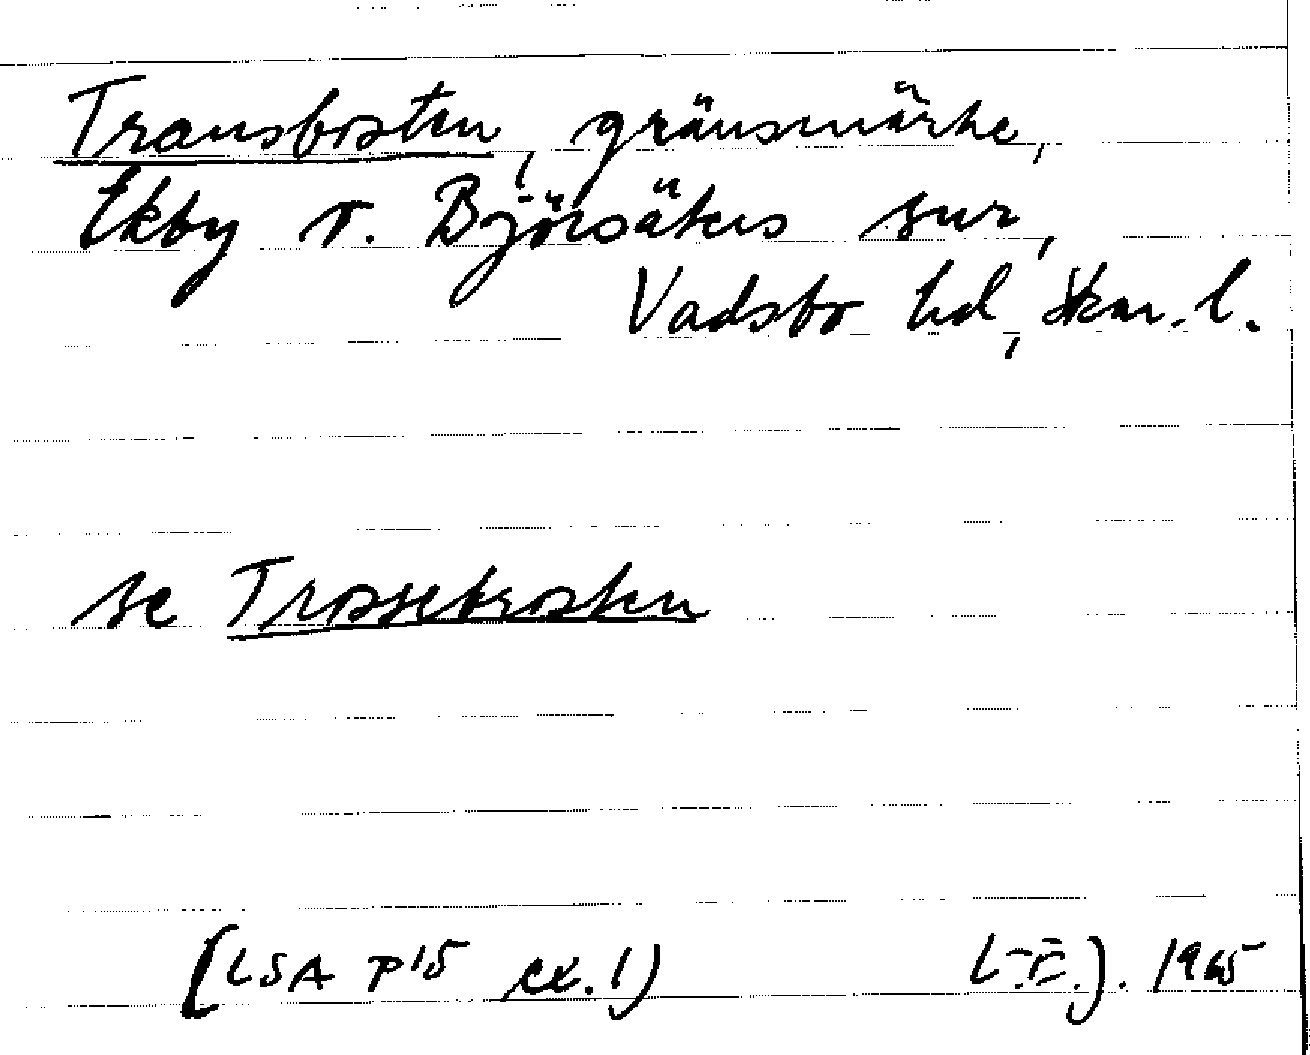 Transbosten, gränsmärke,
Ekby o. Björsäters snr,
Vadsbo hd, Skar. l.
se Trossebrosten
(LSA P15 ex. 1) 1965